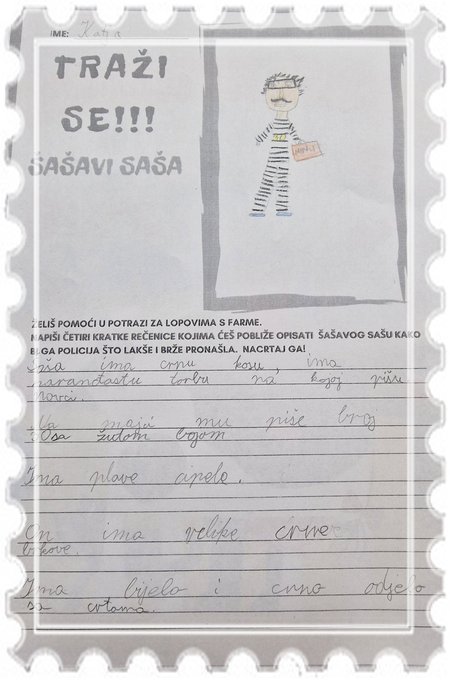 IME: Katja
TRAŽI
SE!!!
ŠAŠAVI SAŠA
NOVCI
ŽELIŠ POMOĆI U POTRAZI ZA LOPOVIMA S FARME.
NAPIŠI ČETIRI KRATKE REČENICE KOJIMA ĆEŠ POBLIŽE OPISATI ŠAŠAVOG SAŠU KAKO
BI GA POLICIJA ŠTO LAKŠE I BRŽE PRONAŠLA. NACRTAJ GA!
Saša ima crnu kosu, ima
narančastu torbu na kojoj piše
novci.
Na majici mu piše broj
30 sa žutom bojom
Ima plave cipele.
On ima velike crne
brkove.
Ima bijelo i crno odjelo
sa crtama.